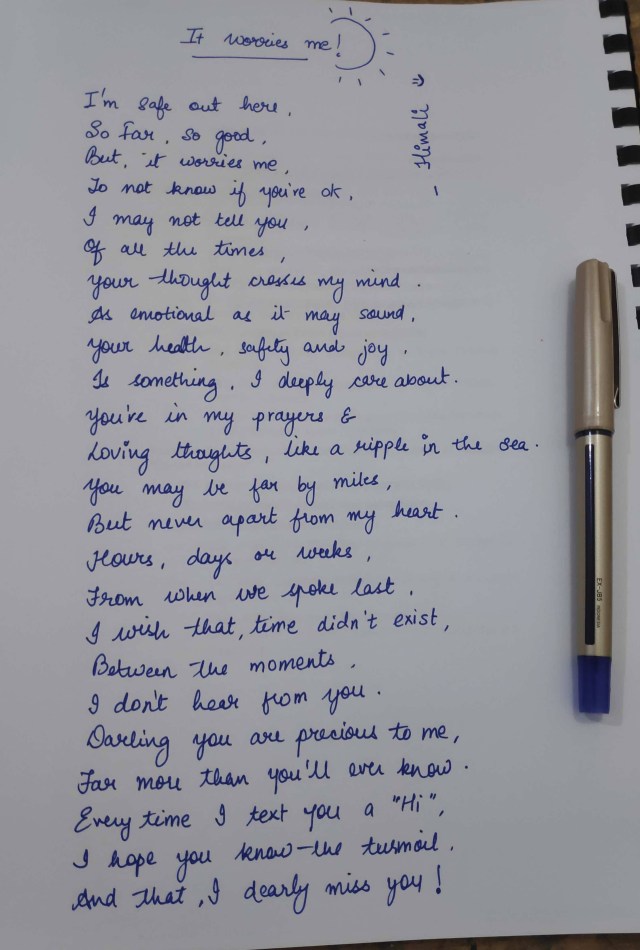 It worries me!
- Himali
I'm safe out here,
So far, so good,
But, it worries me,
To not know if you're ok,
I may not tell you,
Of all the times,
your thought crosses my mind.
As emotional as it may sound,
your health, safety and joy,
Is something, I deeply care about.
You're in my prayers &
Loving thoughts, like a ripple in the sea.
You may be far by miles,
But never apart from my heart.
Hours, days or weeks,
From when we spoke last,
I wish that, time didn't exist,
Between the moments,
I don't hear from you.
Darling you are precious to me,
Far more than you'll ever know.
Every time I text you a "Hi",
I hope you know the turmoil.
And that, I dearly miss you!